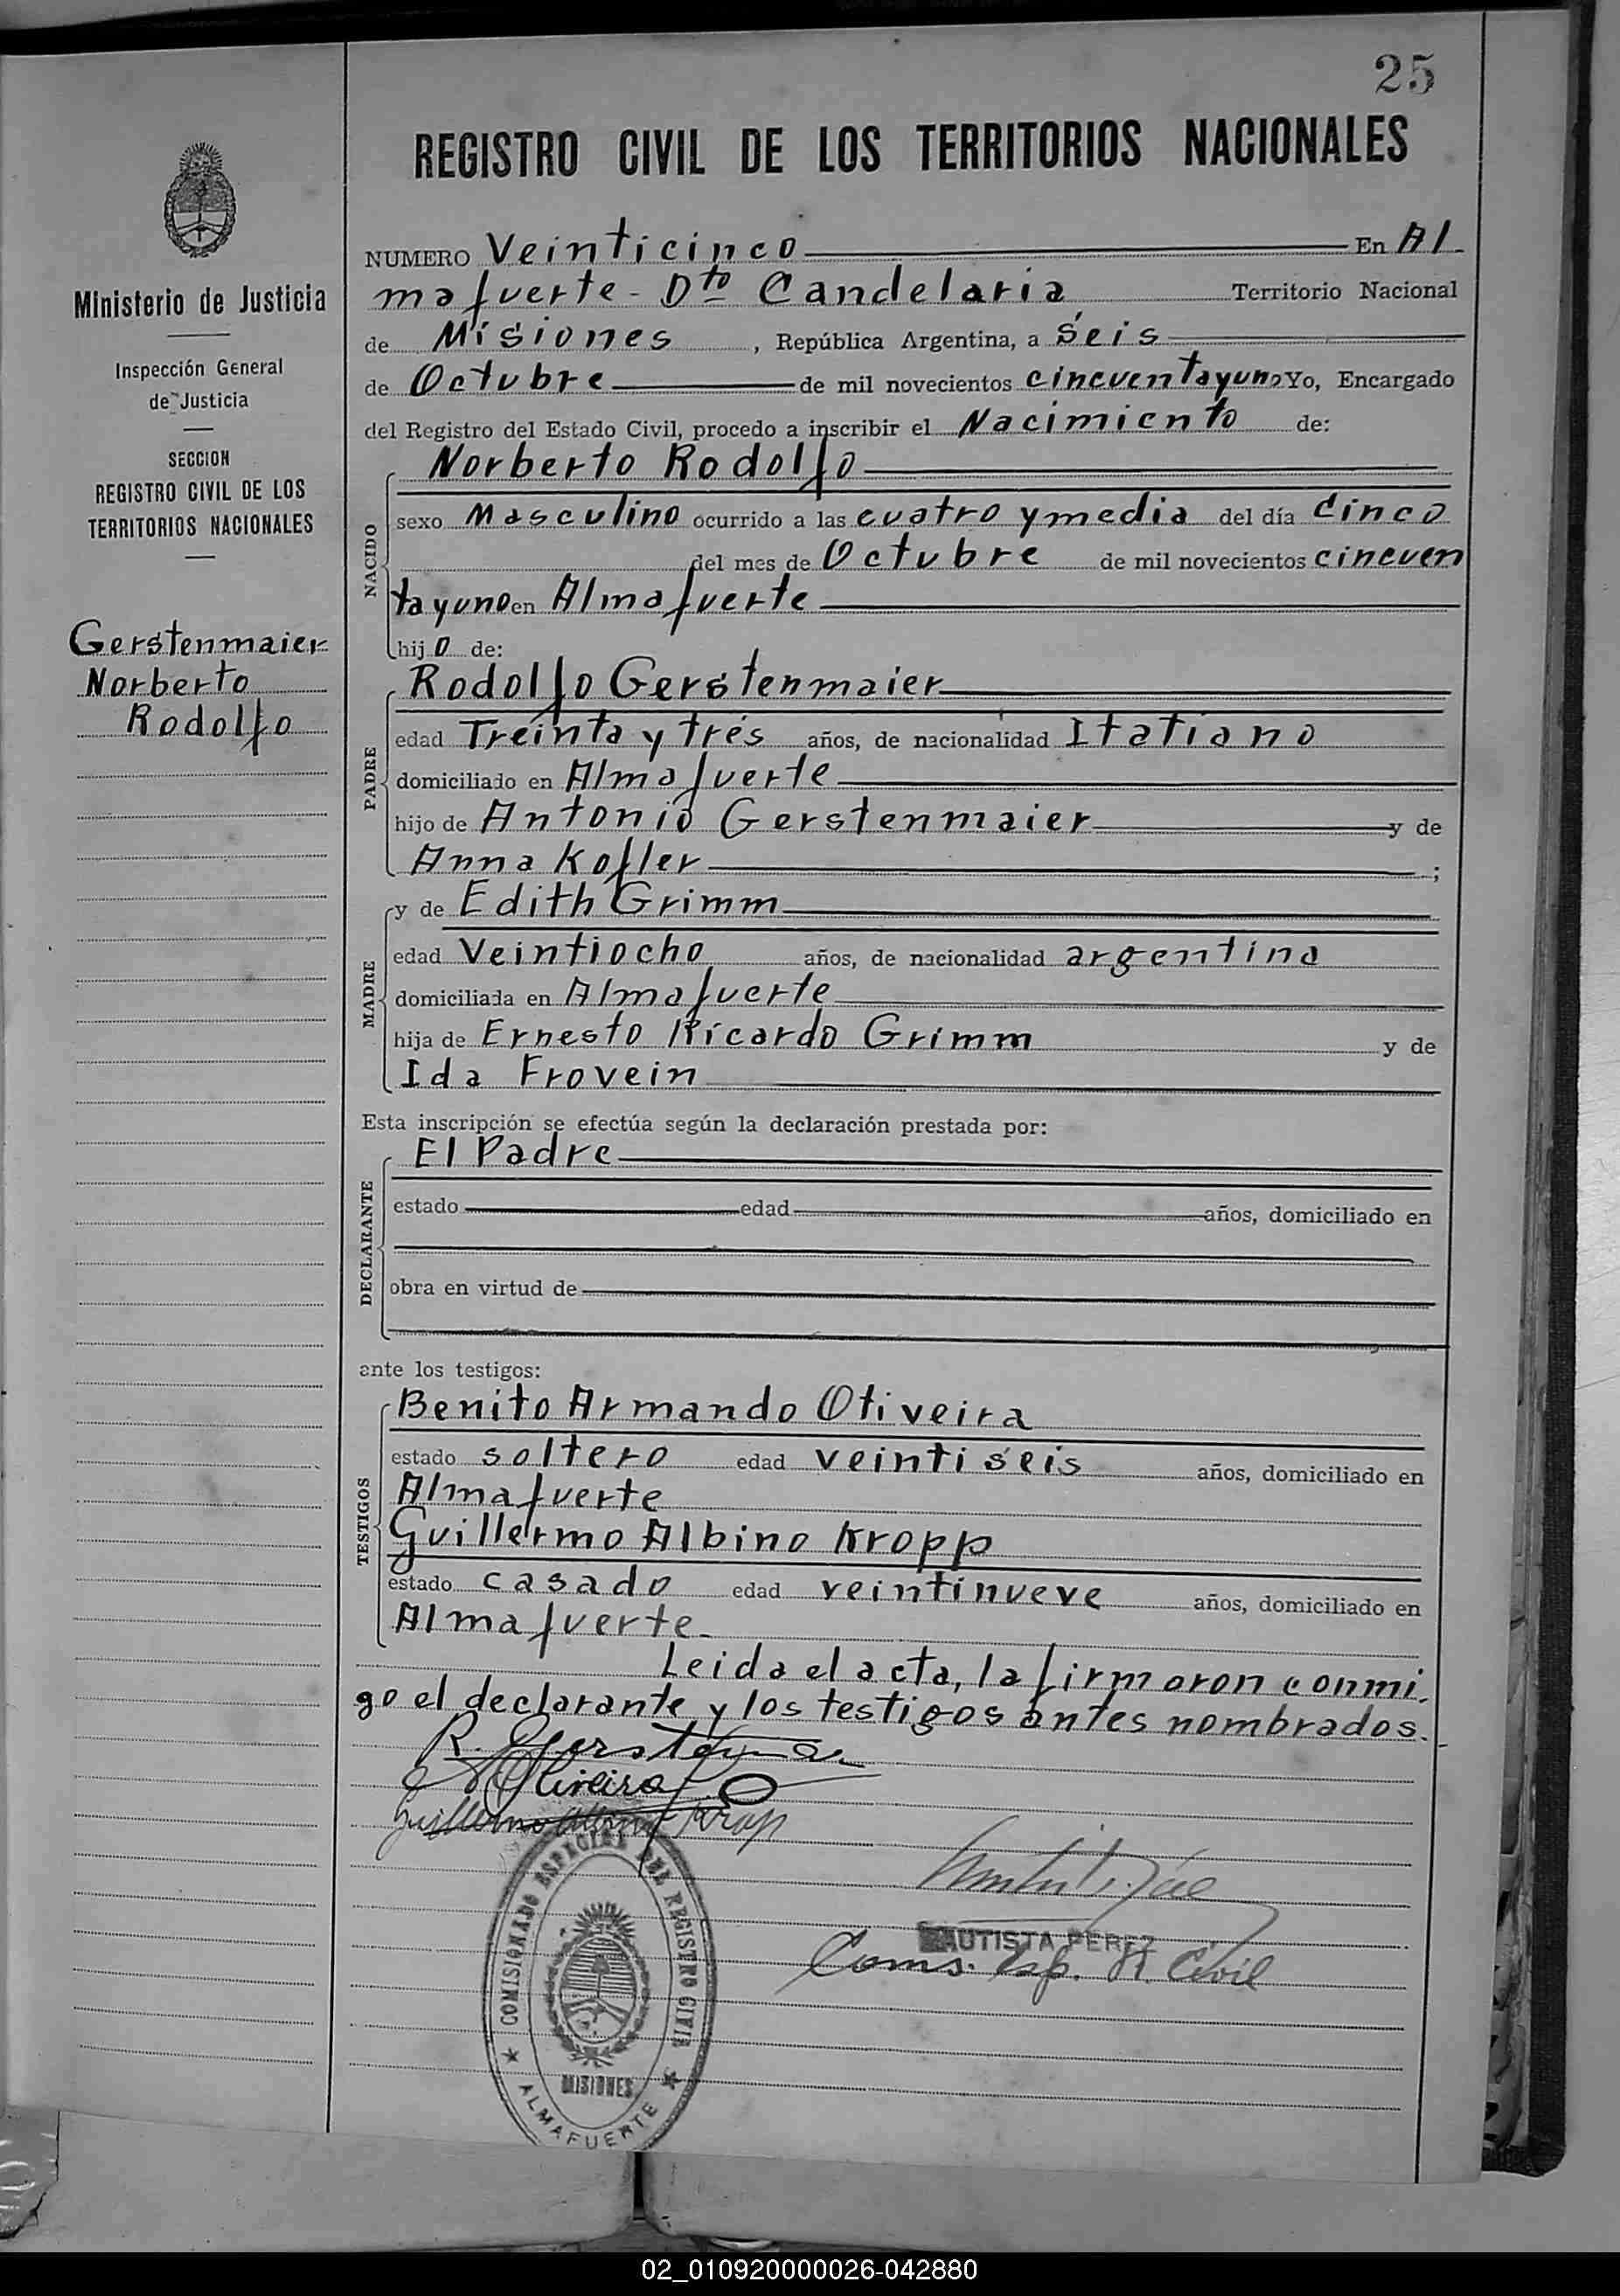 25
REGISTRO CIVIL DE LOS TERRITORIOS NACIONALES
Ministerio de Justicia
Inspección General
de Justicia
SECCION
REGISTRO CIVIL DE LOS
TERRITORIOS NACIONALES
Gerstenmaier
Norberto
Rodolfo
NUMERO Veinticinco En Al
mafuerte - Dto Candelaria Territorio Nacional
de Misiones, República Argentina, a seis
de Octubre de mil novecientos cincuentayuno Yo, Encargado
del Registro del Estado Civil, procedo a inscribir el Nacimiento de:
NACIDO
Norberto Rodolfo
sexo Masculino ocurrido a las cuatro y media del día cinco
del mes de Octubre de mil novecientos cincuen
tayuno en Almafuerte
hijo de:
PADRE
Rodolfo Gerstenmaier
edad Treinta y tres años, de nacionalidad Italiano
domiciliado en Almafuerte
hijo de Antonio Gerstenmaier y de
Anna Kofler;
MADRE
y de Edith Grimm
edad Veintiocho años, de nacionalidad argentina
domiciliada en Almafuerte
hija de Ernesto Ricardo Grimm y de
Ida Frovein
Esta inscripción se efectúa según la declaración prestada por:
DECLARANTE
El Padre
estado edad años, domiciliado en
obra en virtud de
ante los testigos:
TESTIGOS
Benito Armando Oliveira
estado soltero edad veintiseis años, domiciliado en
Almafuerte
Guillermo Albino Kropp
estado casado edad veintinueve años, domiciliado en
Almafuerte.
Leida el acta, la firmaron conmi
go el declarante y los testigos antes nombrados.
R. Gerstenma
Oliveira
Guillermo Albino Krop
COMISIONADO ESPECIAL DEL REGISTRO CIVIL
MISIONES
ALMAFUERTE
BAUTISTA PEREZ
Coms. Esp. R. Civil
02_010920000026-042880